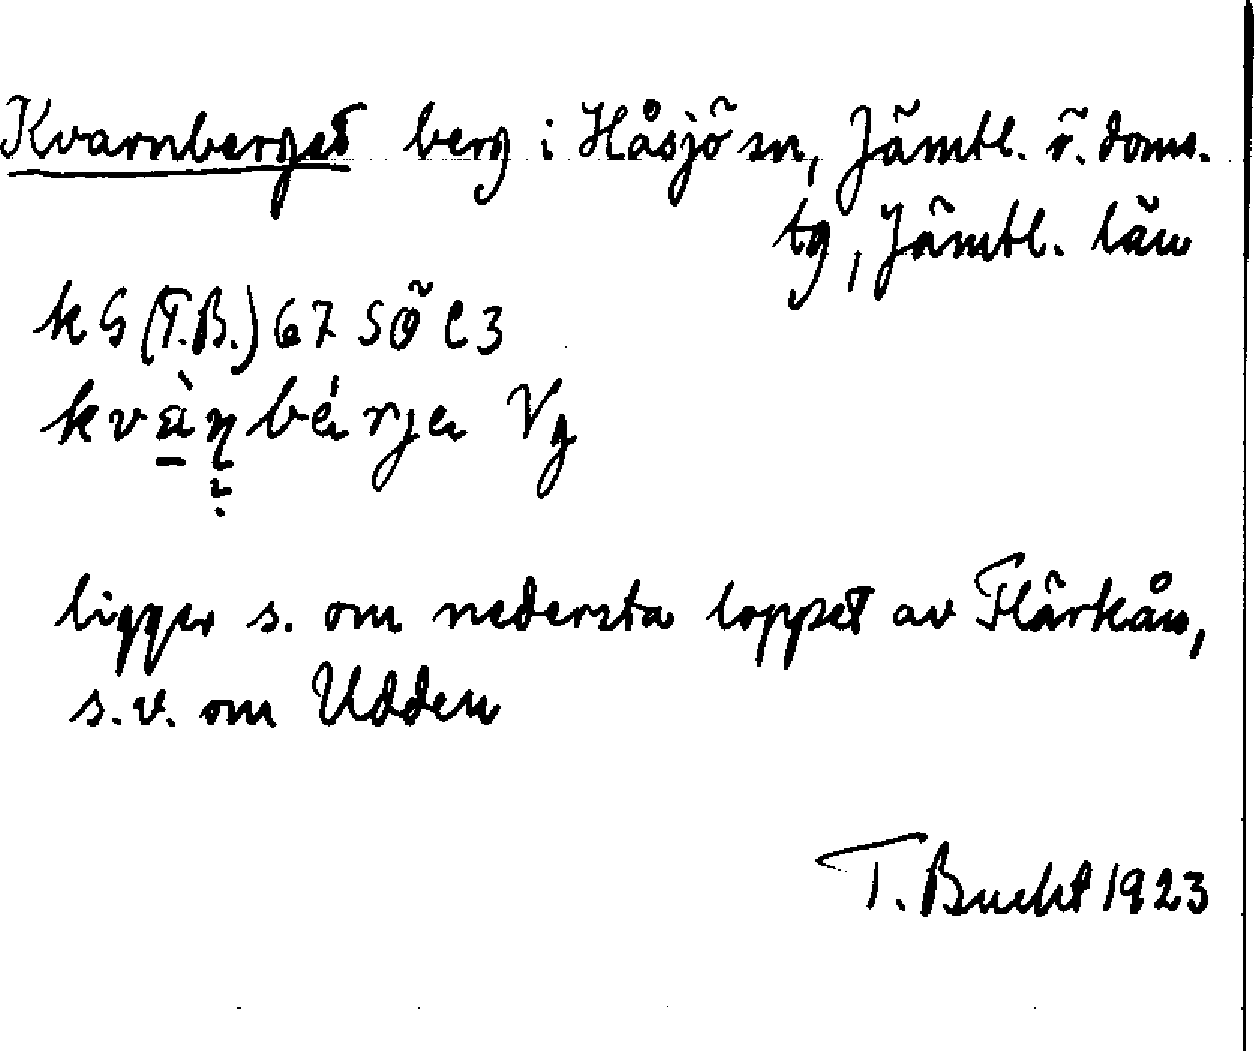 Kvarnberget berg i Håsjö sn, Jämtl. ö. doms.
tg, Jämtl. län
kG (T.B.) 67 SÖ C3
ligger s. om nedersta loppet av Flärkån,
s.v. om Udden
T. Bucht 1923